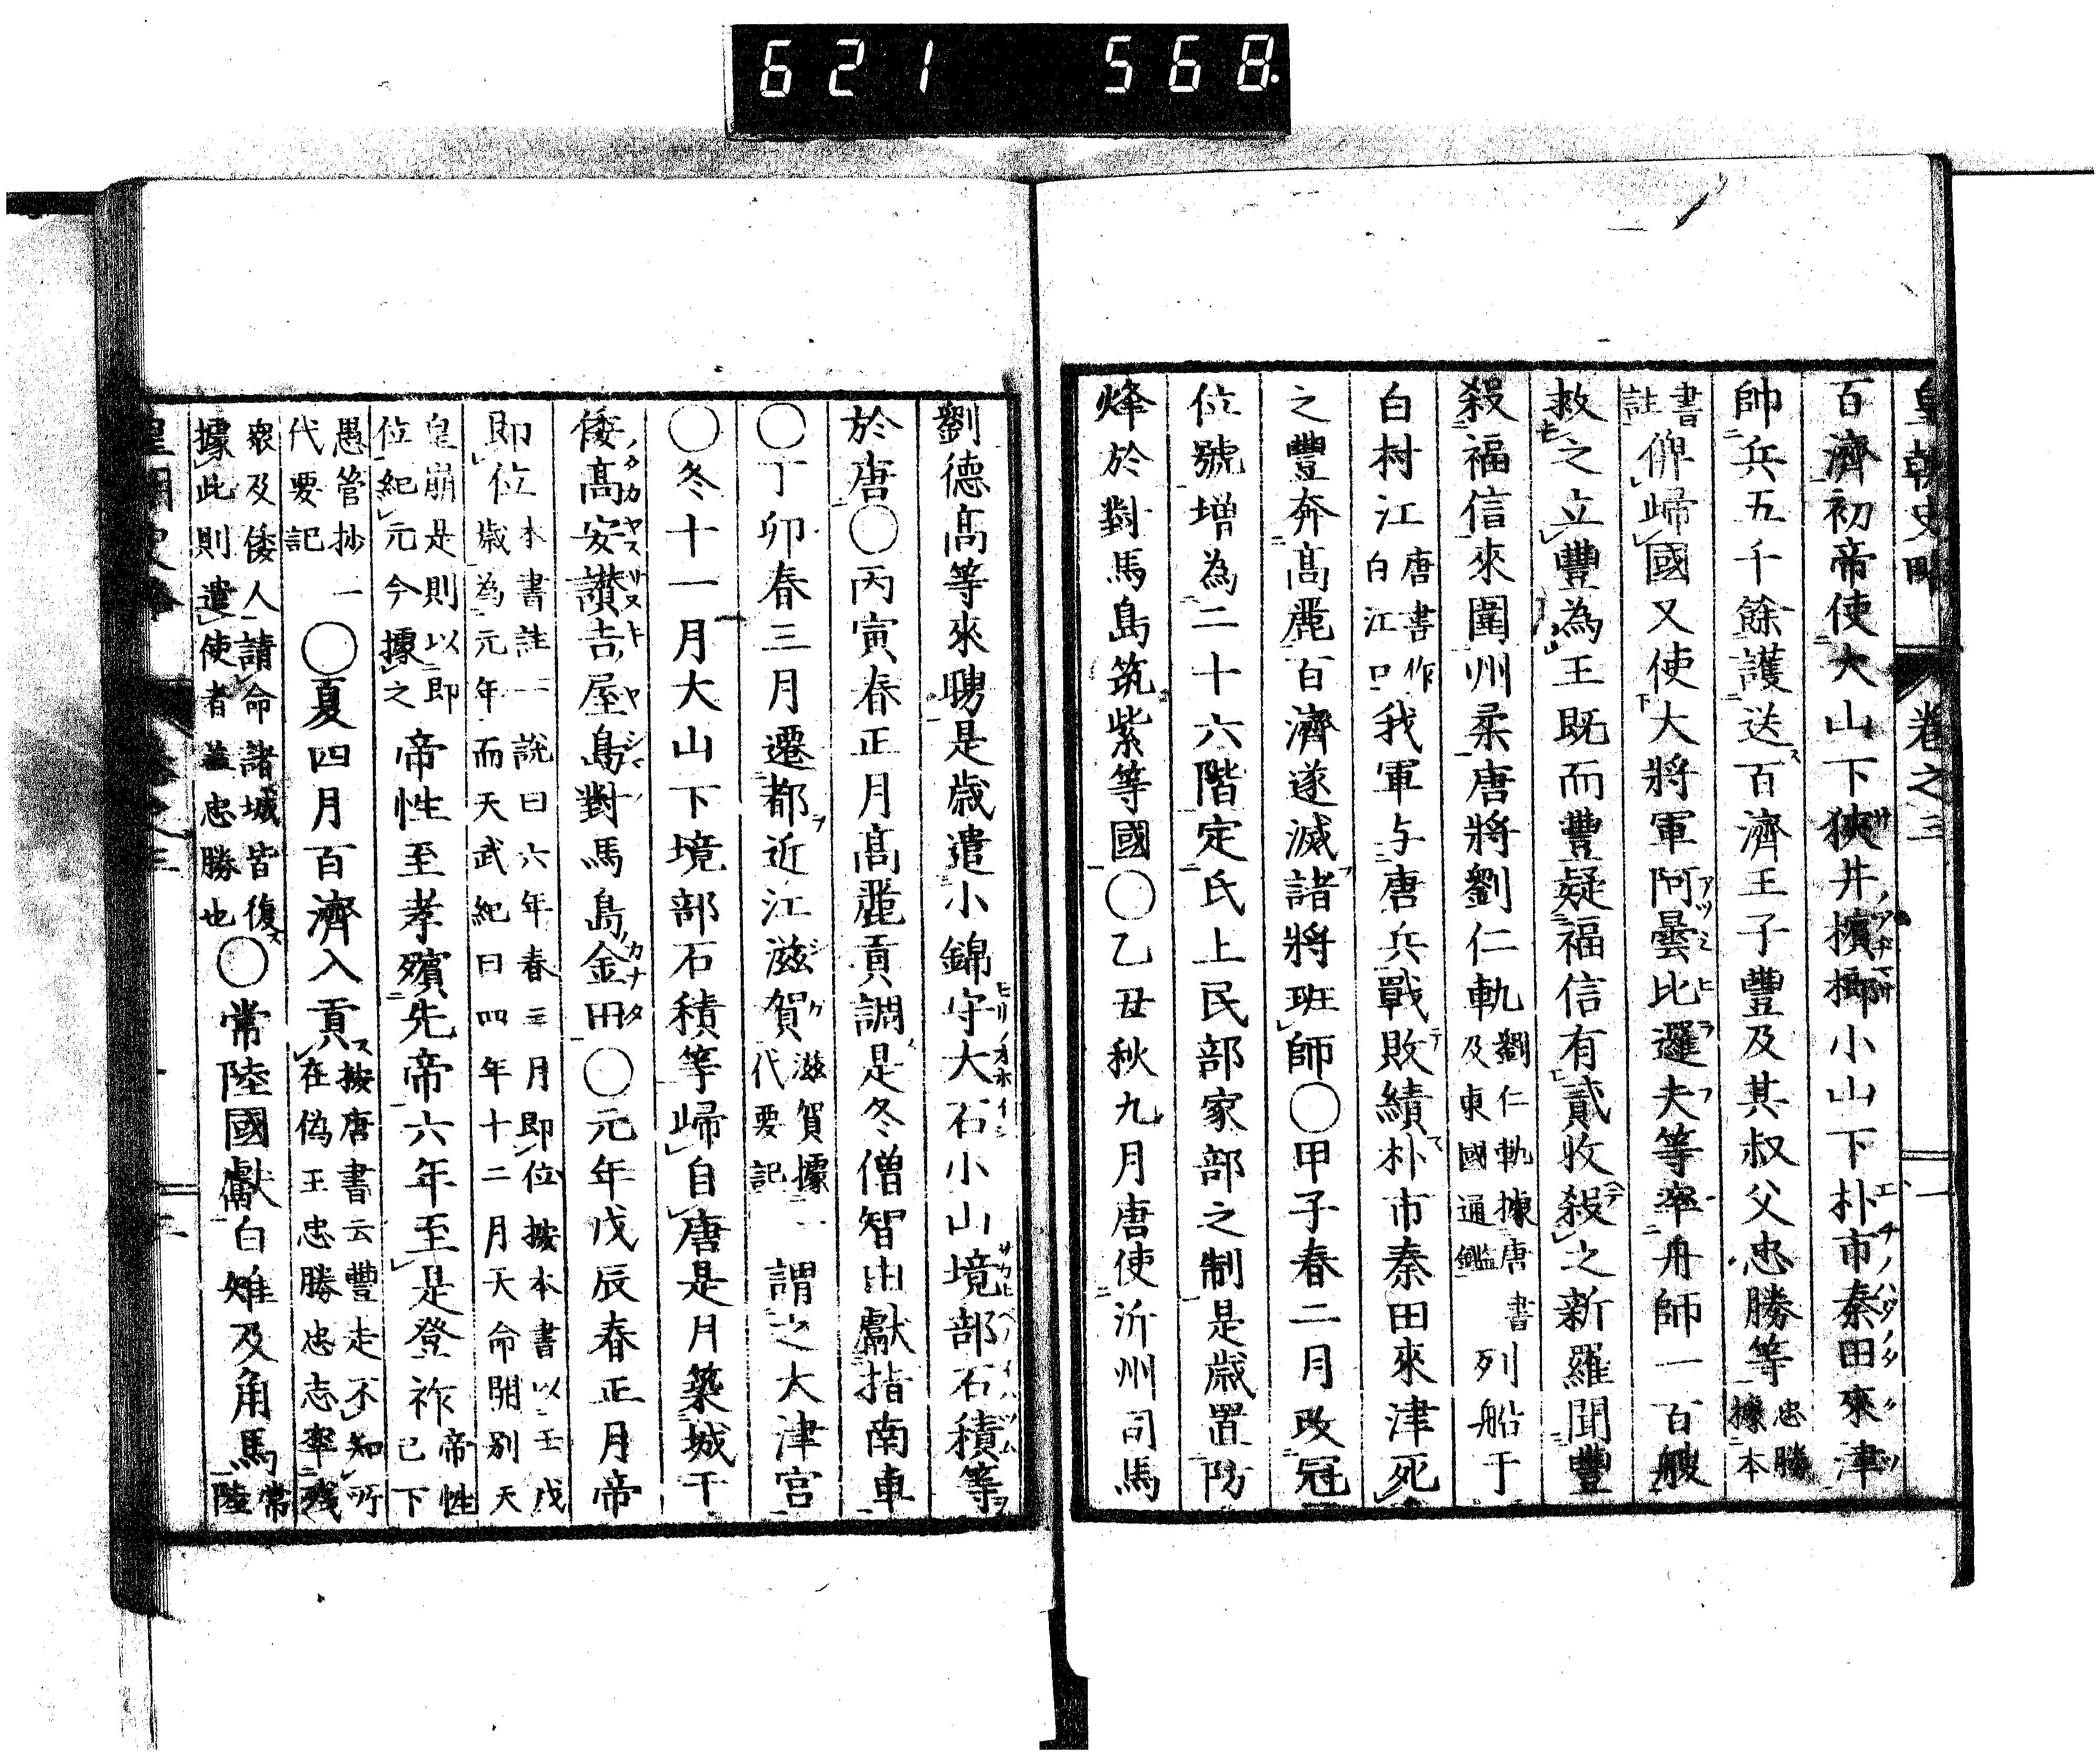 621 568.
皇朝史略 卷之三 一
百濟初帝使大山下狹井檳榔小山下朴市秦田來津
帥兵五千餘護送百濟王子豐及其叔父忠勝等忠勝據本
書註俾歸國又使大將軍阿曇比邏夫等率舟師一百艘
救之立豐為王既而豐疑福信有貳收殺之新羅聞豐
殺福信來圍州柔唐將劉仁軌劉仁軌據唐書及東國通鑑列船于
白村江唐書作白江口我軍与唐兵戰敗績朴市秦田來津死
之豐奔高麗百濟遂滅諸將班師〇甲子春二月改冠
位號增為二十六階定氏上民部家部之制是歲置防
烽於對馬島筑紫等國〇乙丑秋九月唐使沂州司馬
劉德高等來聘是歲遣小錦守大石小山境部石積等
於唐〇丙寅春正月高麗貢調是冬僧智由獻指南車
〇丁卯春三月遷都近江滋賀滋賀據一代要記謂之大津宮
〇冬十一月大山下境部石積等歸自唐是月築城于
倭高安讃吉屋島對馬島金田〇元年戊辰春正月帝
即位本書註一說曰六年春三月即位按本書以壬戌歲為元年而天武紀曰四年十二月天命開別天
皇崩是則以即位紀元今據之帝性至孝殯先帝六年至是登祚帝性已下
愚管抄一代要記〇夏四月百濟入貢按唐書云豐走不知所在偽王忠勝忠志率殘
衆及倭人請命諸城皆復據此則遣使者蓋忠勝也〇常陸國獻白雉及角馬常陸